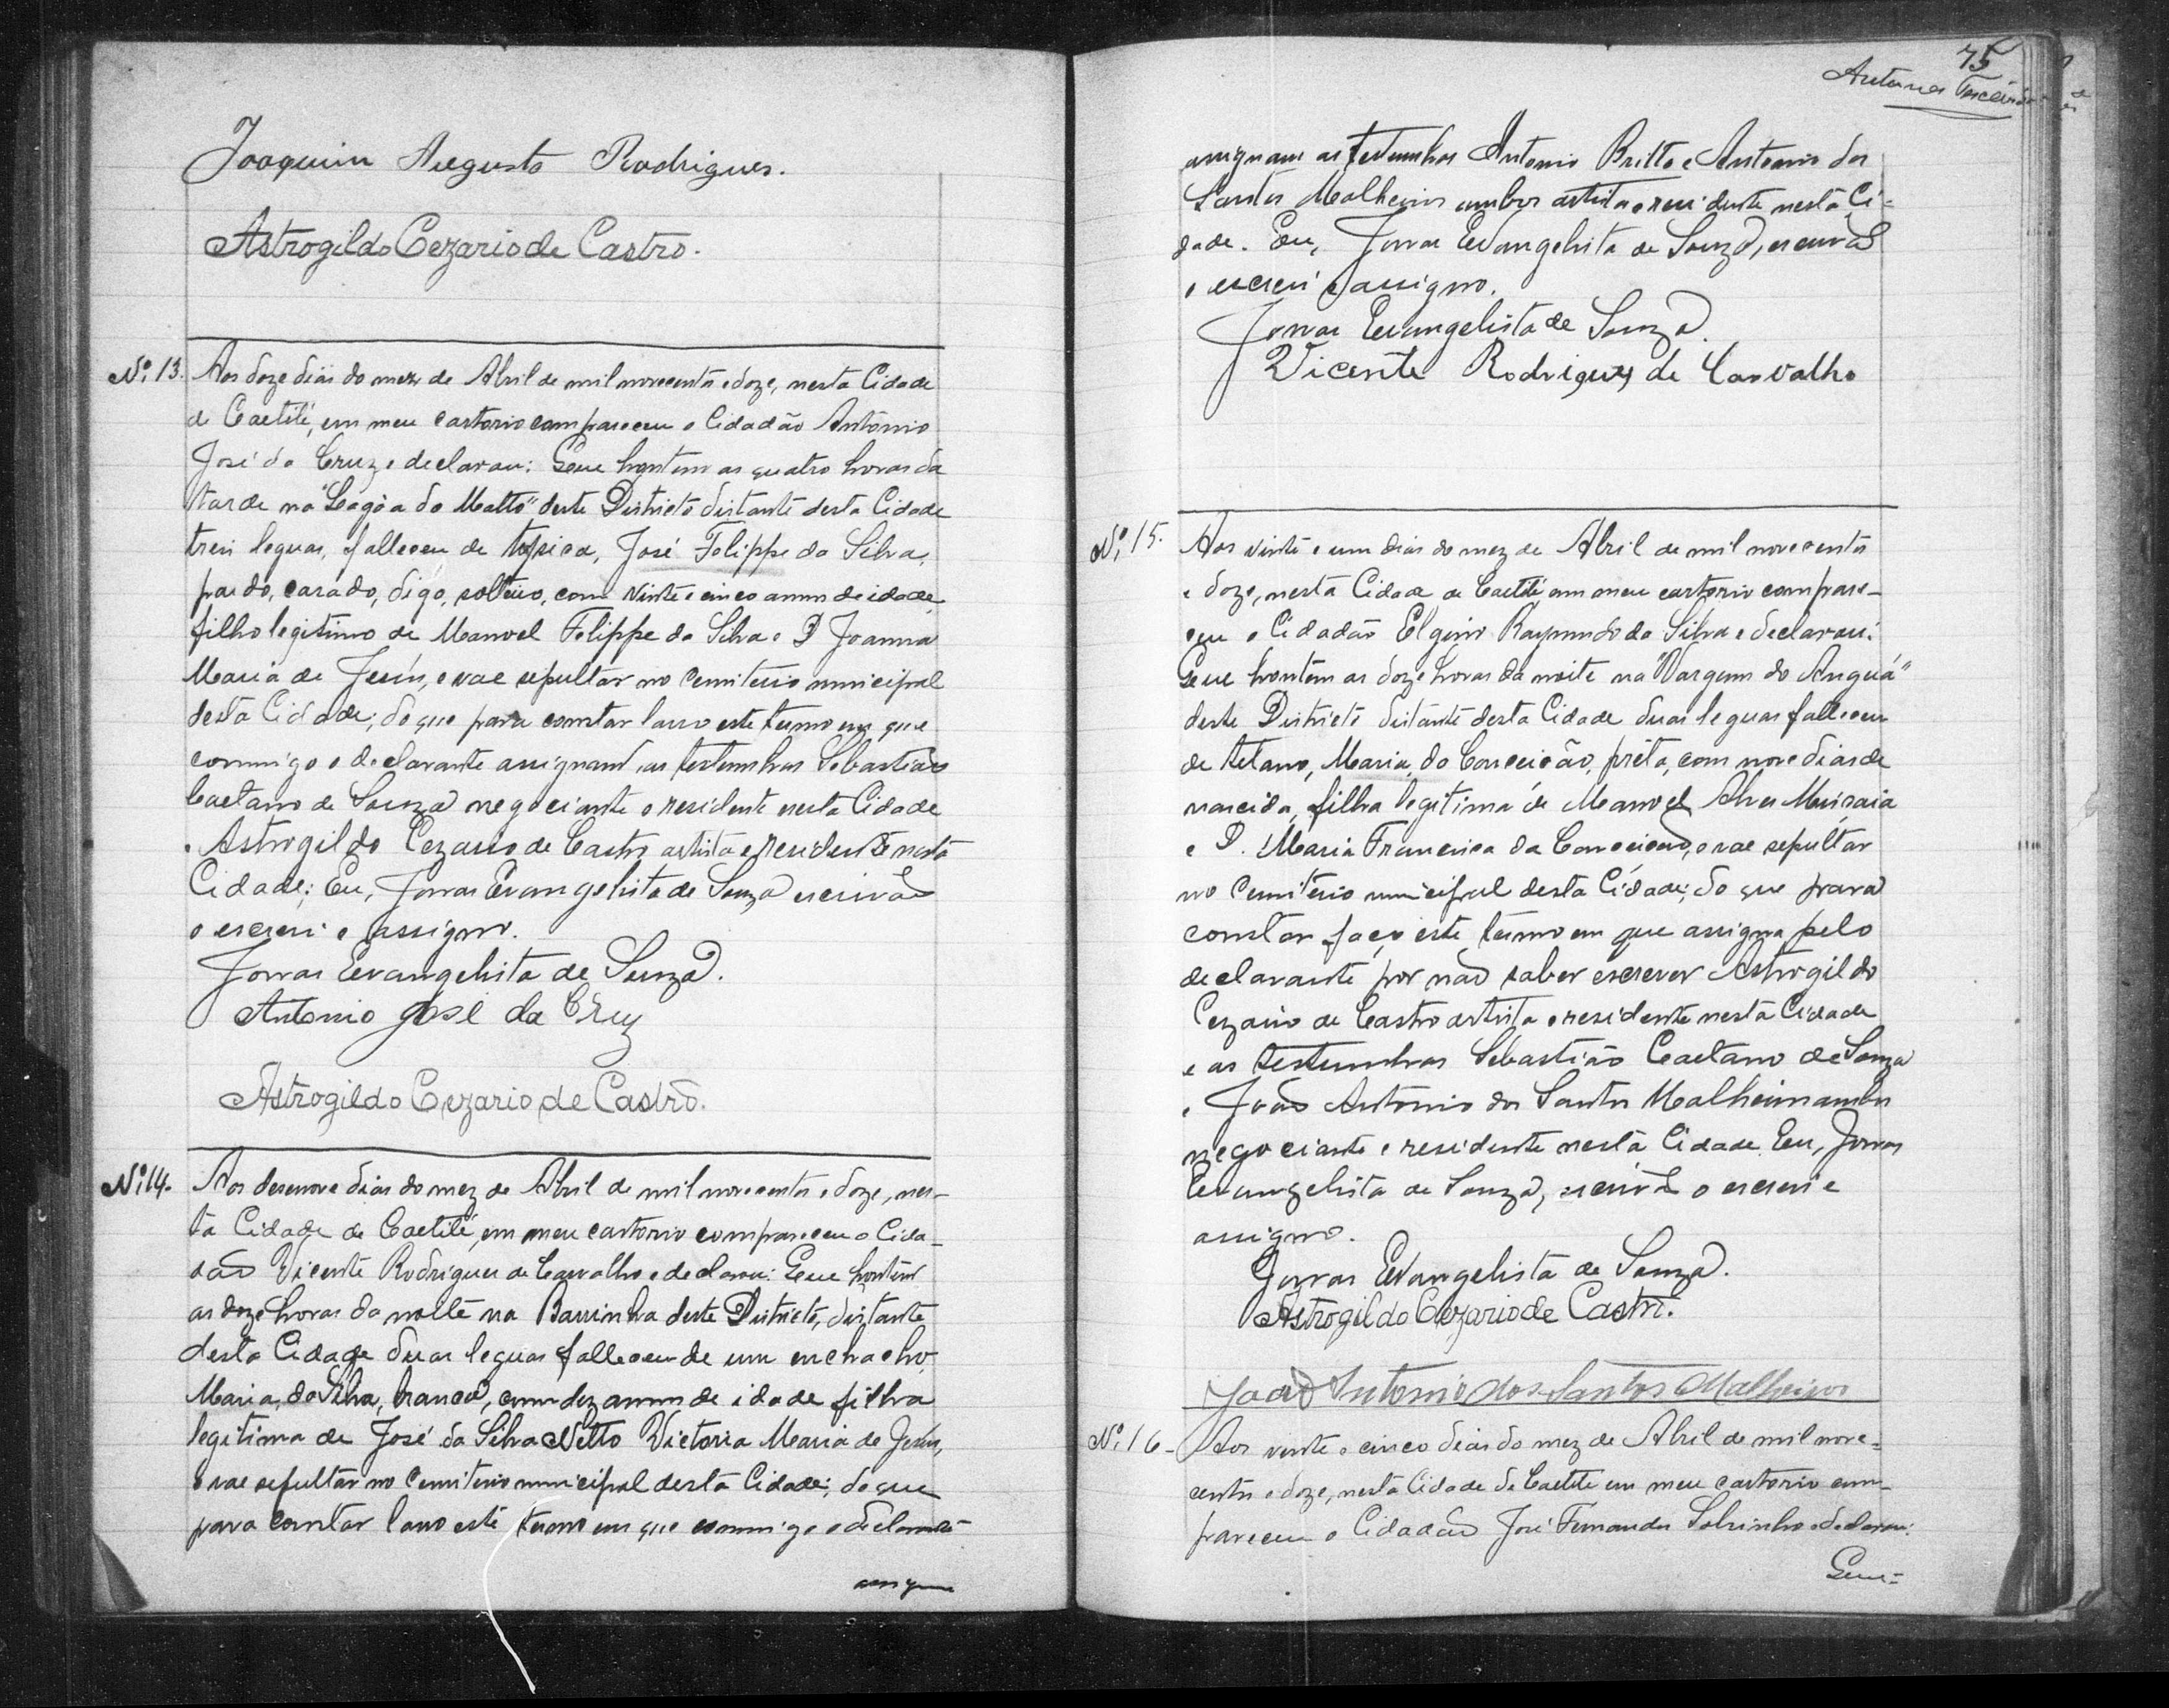 Joaquim Augusto Rodrigues.
Astrogildo Cezario de Castro.
Nº 13. Aos doze dias do mez de Abril de mil novecentos e doze, nesta Cidade
de Caetité, em meu cartorio compareceu o Cidadão Antonio
José da Cruz e declarou: Que hontem as quatro horas da
tarde na "Lagôa do Matto" deste Districto distante desta Cidade
tres leguas, falleceu de José Felippe da Silva,
pardo, casado, digo, solteiro, com vinte e cinco annos de idade,
filho legitimo de Manoel Felippe da Silva e D Joanna
Maria de Jesus, e vae sepultar no Cemiterio municipal
desta Cidade; do que para constar lavro este termo em que
commigo o declarante assignam as testemunhas Sebastião
Caetano de Souza negociante e residente nesta Cidade
e Astrogildo Cezario de Castro artista e residente nesta
Cidade; Eu, Jonas Evangelista de Souza escrivão
o escrevi e assigno.
Jonas Evangelista de Souza.
Antonio José da Cruz
Astrogildo Cezario de Castro.
Nº 14. Aos desenove dias do mez de Abril de mil novecentos e doze, nes-
ta Cidade de Caetité, em meu cartorio compareceu o Cida-
dão Vicente Rodrigues de Carvalho e declarou: Que hontem
as doze horas da noite na Barrinha deste Districto, distante
desta Cidade duas leguas falleceu de um
Maria da Silva, branca, com dez annos de idade filha
legitima de José da Silva Netto Victoria Maria de Jesus,
e vae sepultar no Cemiterio municipal desta Cidade; do que
para constar lavro este termo em que commigo o declarante
assignam
75
Antonio
assignam as testemunhas Antonio Britto e Antonio dos
Santos Malheiros ambos artista e residente nesta Ci-
dade. Eu, Jonas Evangelista de Souza, escrivão
o escrevi e assigno.
Jonas Evangelista de Souza.
Vicente Rodrigues de Carvalho
Nº 15. Aos vinte e um dias do mez de Abril de mil novecentos
e doze, nesta Cidade de Caetité em meu cartorio compare-
ceu o Cidadão Raymundo da Silva e declarou:
Que hontem as doze horas da noite na "Vargem do Anguá"
deste Districto distante desta Cidade duas leguas falleceu
de tetano, Maria da Conceição, prêta, com nove dias de
nascida, filha legitima de Manoel Alves
e D. Maria Francisca da Conceição, e vae sepultar
no Cemiterio municipal desta Cidade; do que para
constar faço este termo em que assigna pelo
declarante por não saber escrever Astrogildo
Cezario de Castro artista e residente nesta Cidade
e as testemunhas Sebastião Caetano de Souza
e João Antonio dos Santos Malheiros ambos
negociante e residente nesta Cidade. Eu, Jonas
Evangelista de Souza, escrivão o escrevi e
assigno.
Jonas Evangelista de Souza.
Astrogildo Cezario de Castro.
João Antonio dos Santos Malheiros
Nº 16- Aos vinte e cinco dias do mez de Abril de mil nove-
centos e doze, nesta Cidade de Caetité em meu cartorio com-
pareceu o Cidadão José Fernandes Sobrinho e declarou:
Que-